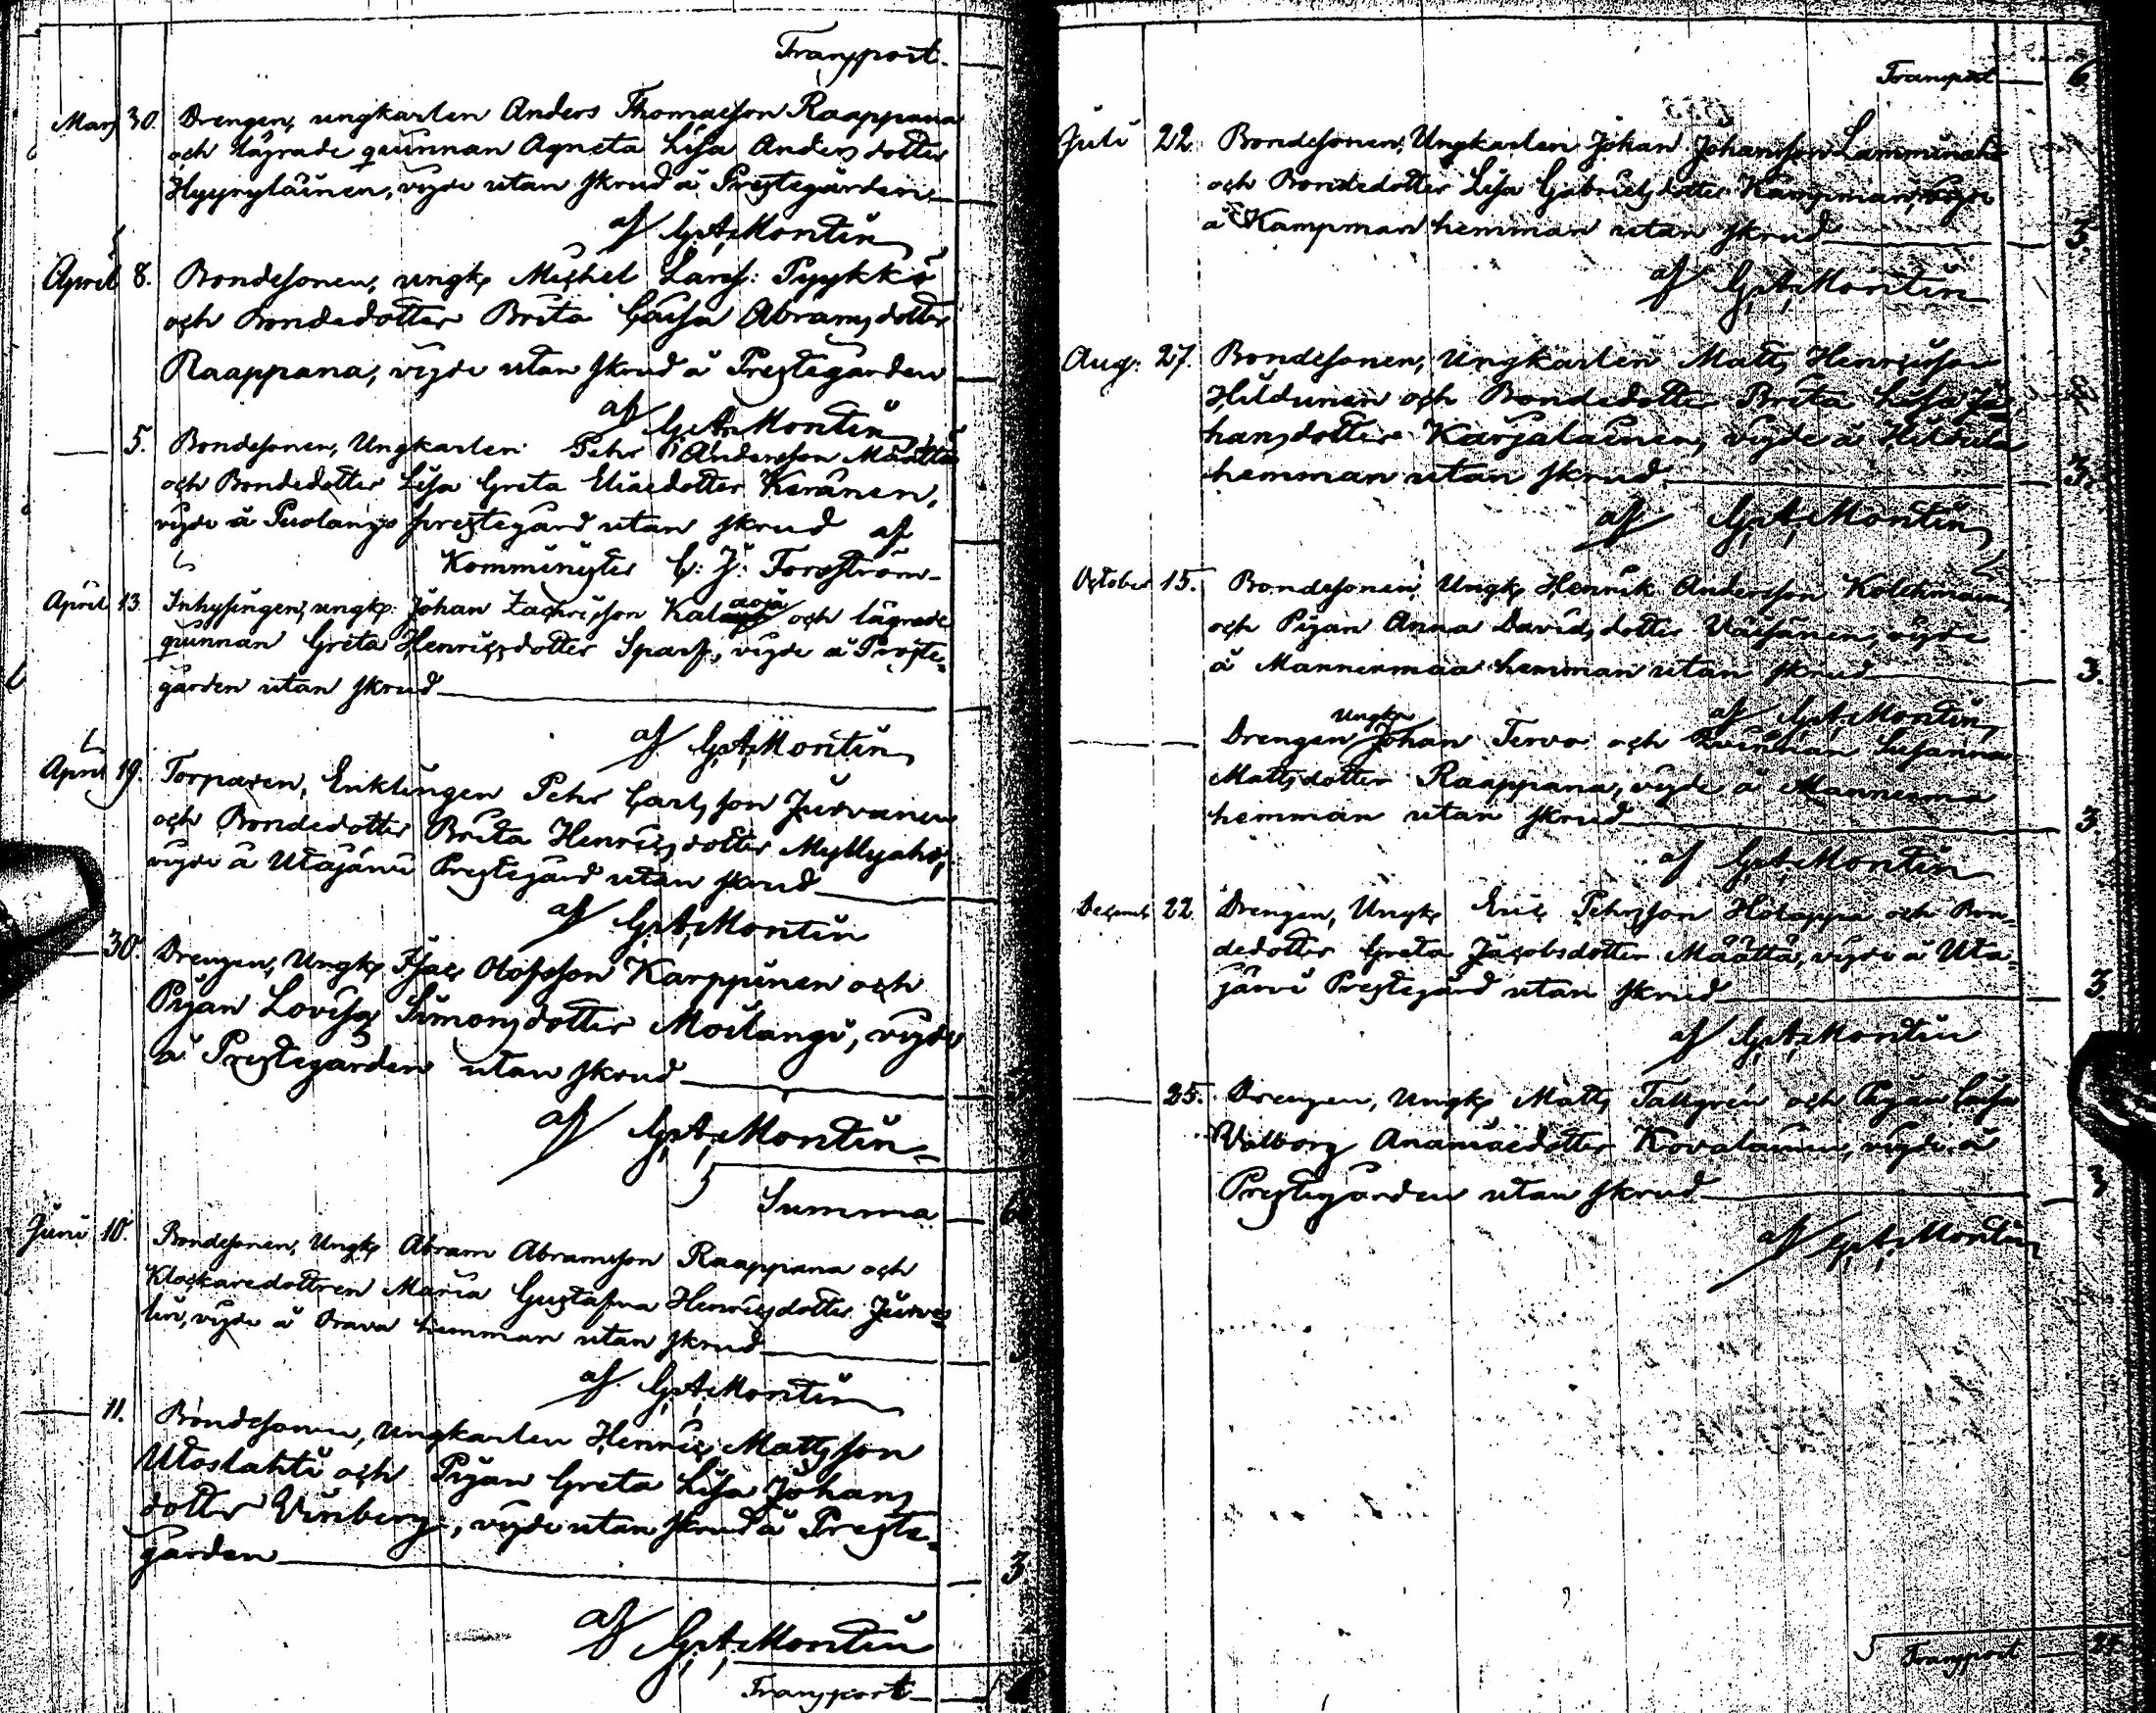 Transport
Mars 30. Drengen, ungkarlen Anders Thomasson Raappana
och lägrade qvinnan Agneta Lisa Anders dotter
Hyyryläinen, vigde utan skrud å Prestegården
af G. A. Montin
April 8. Bondesonen, ungk. Michel Larss: Pyykkö
och Bondedotter Brita Caisa Abrams dotter
Raappana, vigde utan skrud å Prestegården
af G. A. Montin
— 5. Bondesonen, Ungkarlen Pehr Andersson Määttä
och Bondedotter Lisa Greta Eliaedotter Keränen,
vigde å Puolango prestegård utan skrud af
Kommminister C: J: Forsström
April 13. Inhysingen, ungk: Johan Zachrisson Kalaoja och lägrade
qvinnan Greta Henricsdotter Sparf, vigde å Preste-
gården utan skrud
af G. A. Montin
April 19. Torparen, Enklingen Pehr Carlsson Jurvanen
och Bondedotter Brita Henricsdotter Myllyaho,
vigde å Utajärvi Prestegård utan skrud
af G. A. Montin
— 30. Drengen, Ungk. Isac Olofsson Karppinen och
Pigan Lovisa Simonsdotter Moilangi, vigde
å Prestegården utan skrud
af G. A. Montin
Summa 6
Juni 10. Bondesonen, Ungk. Abram Abramsson Raappana och
Klockaredottren Maria Gustafva Henricsdotter Jurve-
lin, vigde å Orava hemman utan skrud
af G. A. Montin
— 11. Bondesonen, ungkarlen Henric Mattsson
Utoslahti och Pigan Greta Lisa Johans
dotter Vinberg, vigde utan skrud å Preste-
gården 3.
af G. A. Montin
Transport 6
Transport 6.
Juli 22. Bondesonen, Ungkarlen Johan Johansson Lamminaho
och Bondedotter Lisa Gabrielsdotter Kampman, vigde
å Kampman hemman utan skrud 3.
af G. A. Montin
Aug. 27. Bondesonen, Ungkarlen Matts Henricsson
Hildunen och Bondedotter Brita Lisa Jo-
hansdotter Karjalainen, vigde å Hildula
hemman utan skrud 3.
af G. A. Montin
October 15. Bondesonen Ungk. Henrik Andersson Kolehmainen,
och Pigan Anna Davidsdotter Väisänen, vigde
å Mannermaa hemman utan skrud 3.
af G. A. Montin
— — Drengen Ungk. Johan Tervo och Qvinnan Susanna
Mattsdotter Raappana, vigde å Mannerma
hemman utan skrud 3.
af G. A. Montin
Decemb. 22. Drengen, Ungk. Eric Pehrsson Holappa och Bon-
dedotter Greta Jacobsdotter Määttä, vigde å Uta-
järvi Prestegård utan skrud 3.
af G. A. Montin
— 25. Drengen, Ungk. Matts Tallgrén och Pigan Caisa
Valborg Ananiaedotter Kovalainen, vigde å
Prestegården utan skrud 3
af G. A. Montin
Transport 24